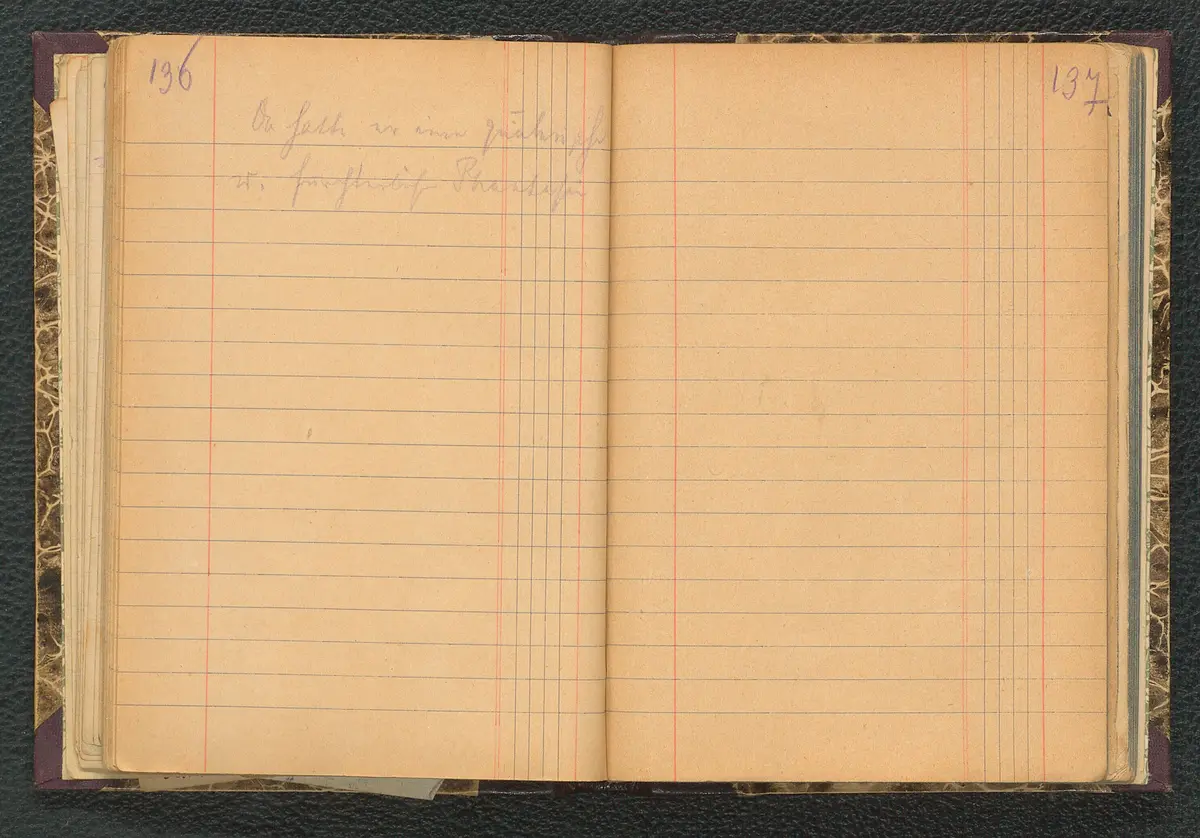 136
Da hatte er eine quälende
u. fürchterliche Phantasie
137